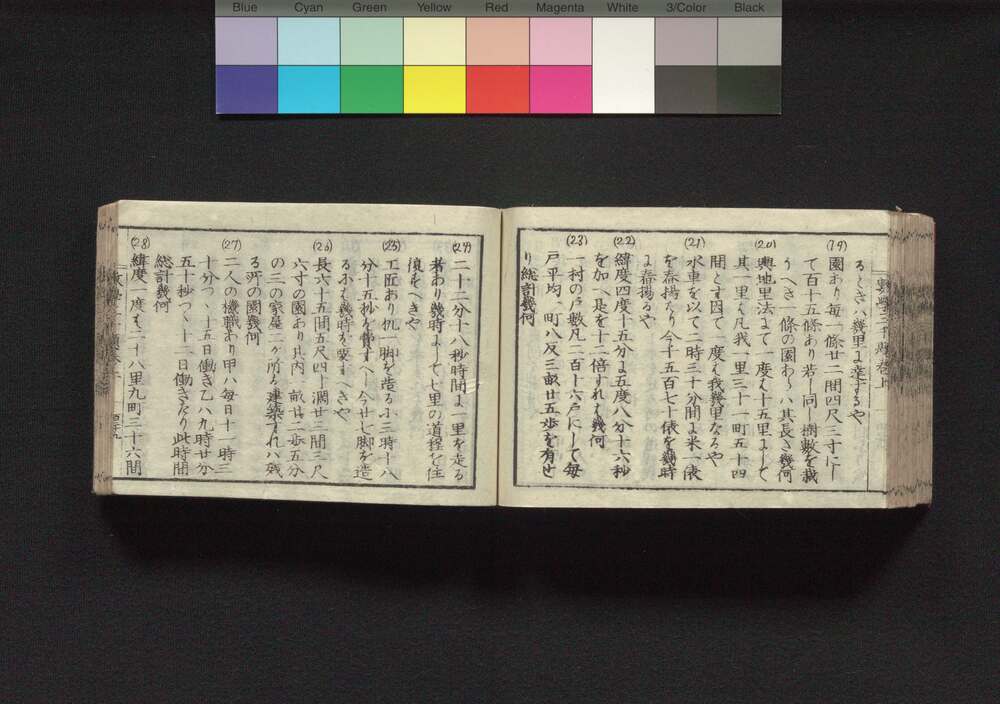 Blue Cyan Green Yellow Red Magenta White 3/Color Black
るときハ幾里に達するや
(19)
園あり毎一條廿二間四尺三寸にし
て百十五條あり若し同し樹數を栽
うへき一條の園あらハ其長さ幾何
(20)
輿地里法にて一度は十五里にして
其一里は凡我一里三十一町五十四
間とす因て一度は我幾里なるや
(21)
水車を以て二時三十分間に米一俵
を舂搗たり今千五百七十俵を幾時
に舂搗るや
(22)
緯度四度十五分に五度八分十六秒
を加へ是を十二倍すれは幾何
(23)
一村の戸數凡二百十六戸にして毎
戸平均一町八反三畝廿五歩を有せ
り総計幾何
(24)
二十二分十八秒時間に一里を走る
者あり幾時にして七里の道程を往
復すへきや
(25)
工匠あり机一脚を造るに三時十八
分十五秒を費すへし今廿七脚を造
るには幾時を要すへきや
(26)
長六十五間五尺四寸濶廿三間三尺
六寸の園あり其内一畝廿二歩五分
の三の家屋二ヶ所を建築すれハ残
る所の園幾何
(27)
二人の機職あり甲ハ毎日十一時三
十分つゝ十五日働き乙ハ九時廿分
五十秒つゝ十二日働きたり此時間
総計幾何
(28)
緯度一度は二十八里九町三十六間